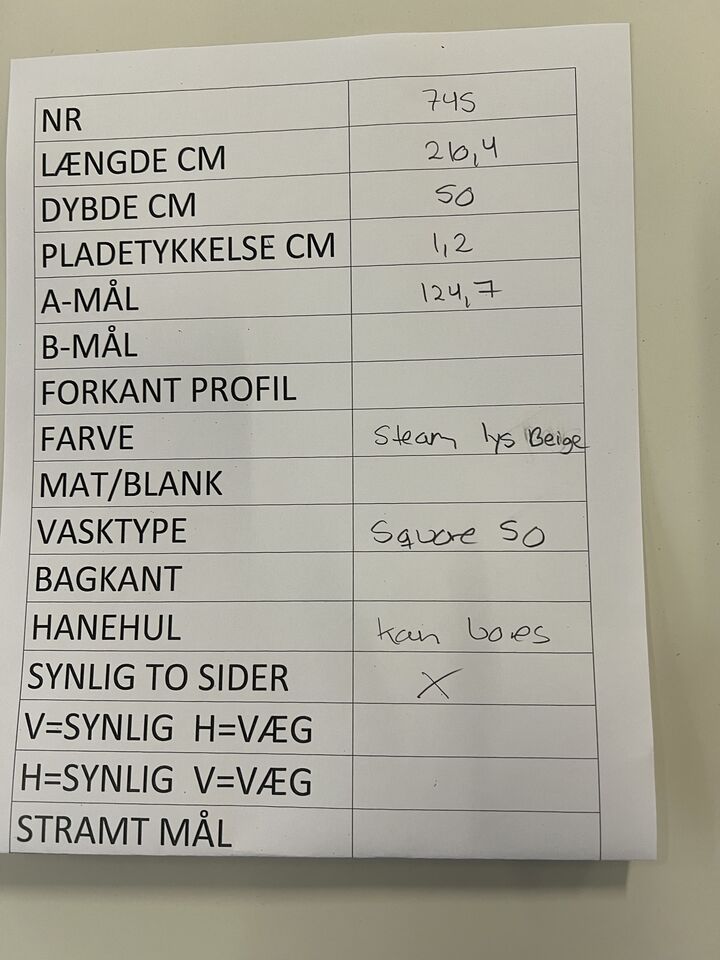 NR 745
LÆNGDE CM 210,4
DYBDE CM 50
PLADETYKKELSE CM 1,2
A-MÅL 124,7
B-MÅL
FORKANT PROFIL
FARVE Steam lys Beige
MAT/BLANK
VASKTYPE Square 50
BAGKANT
HANEHUL kan bores
SYNLIG TO SIDER X
V=SYNLIG H=VÆG
H=SYNLIG V=VÆG
STRAMT MÅL